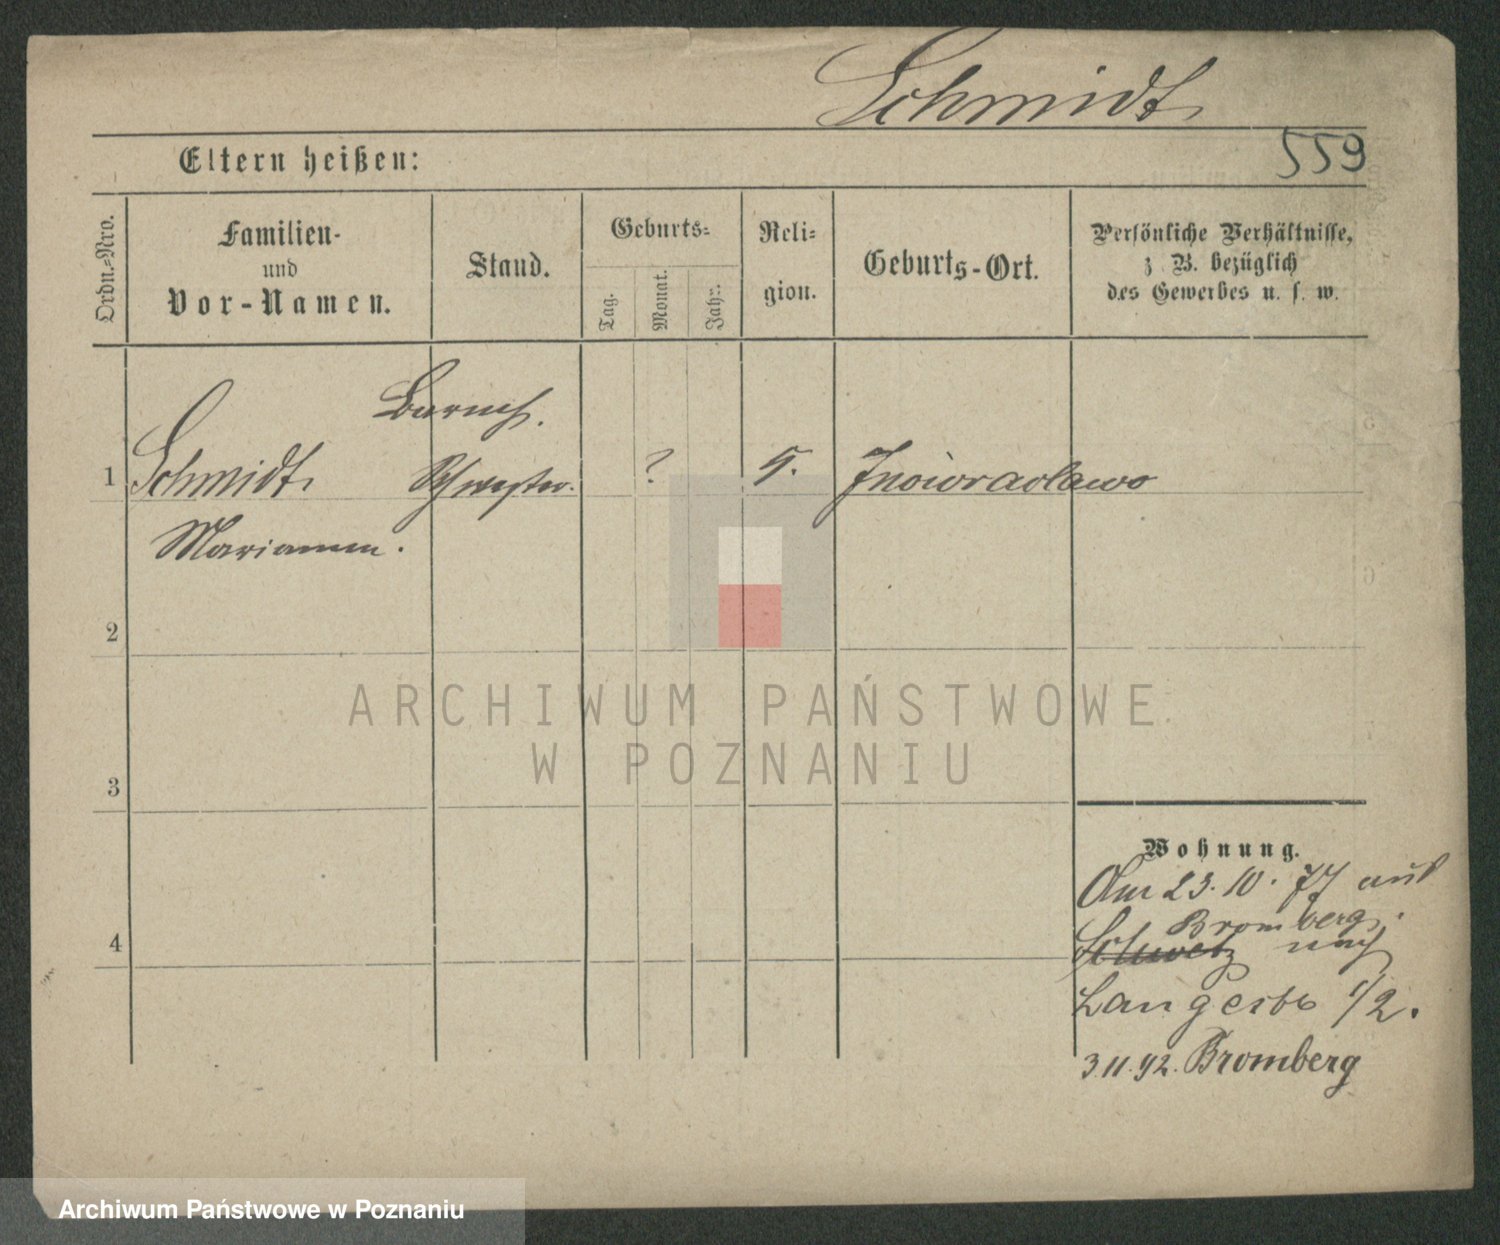 Schmidt
559
Eltern heißen:
Ordn.-Nro.
Familien-
und
Vor-Namen.
Stand.
Geburts-
Tag.
Monat.
Jahr.
Reli-
gion.
Geburts-Ort.
Persönliche Verhältnisse,
z B. bezüglich
des Gewerbes u. s. w.
Baruch.
1 Schmidt, Schwester. ? Inowraclawo
Mariamm.
2
3
4
Wohnung.
Am 23.10.77 aus
Bromberg.
Schwetz nach
Langestr 1/2.
3.11.92. Bromberg
ARCHIWUM PAŃSTWOWE
W POZNANIU
Archiwum Państwowe w Poznaniu